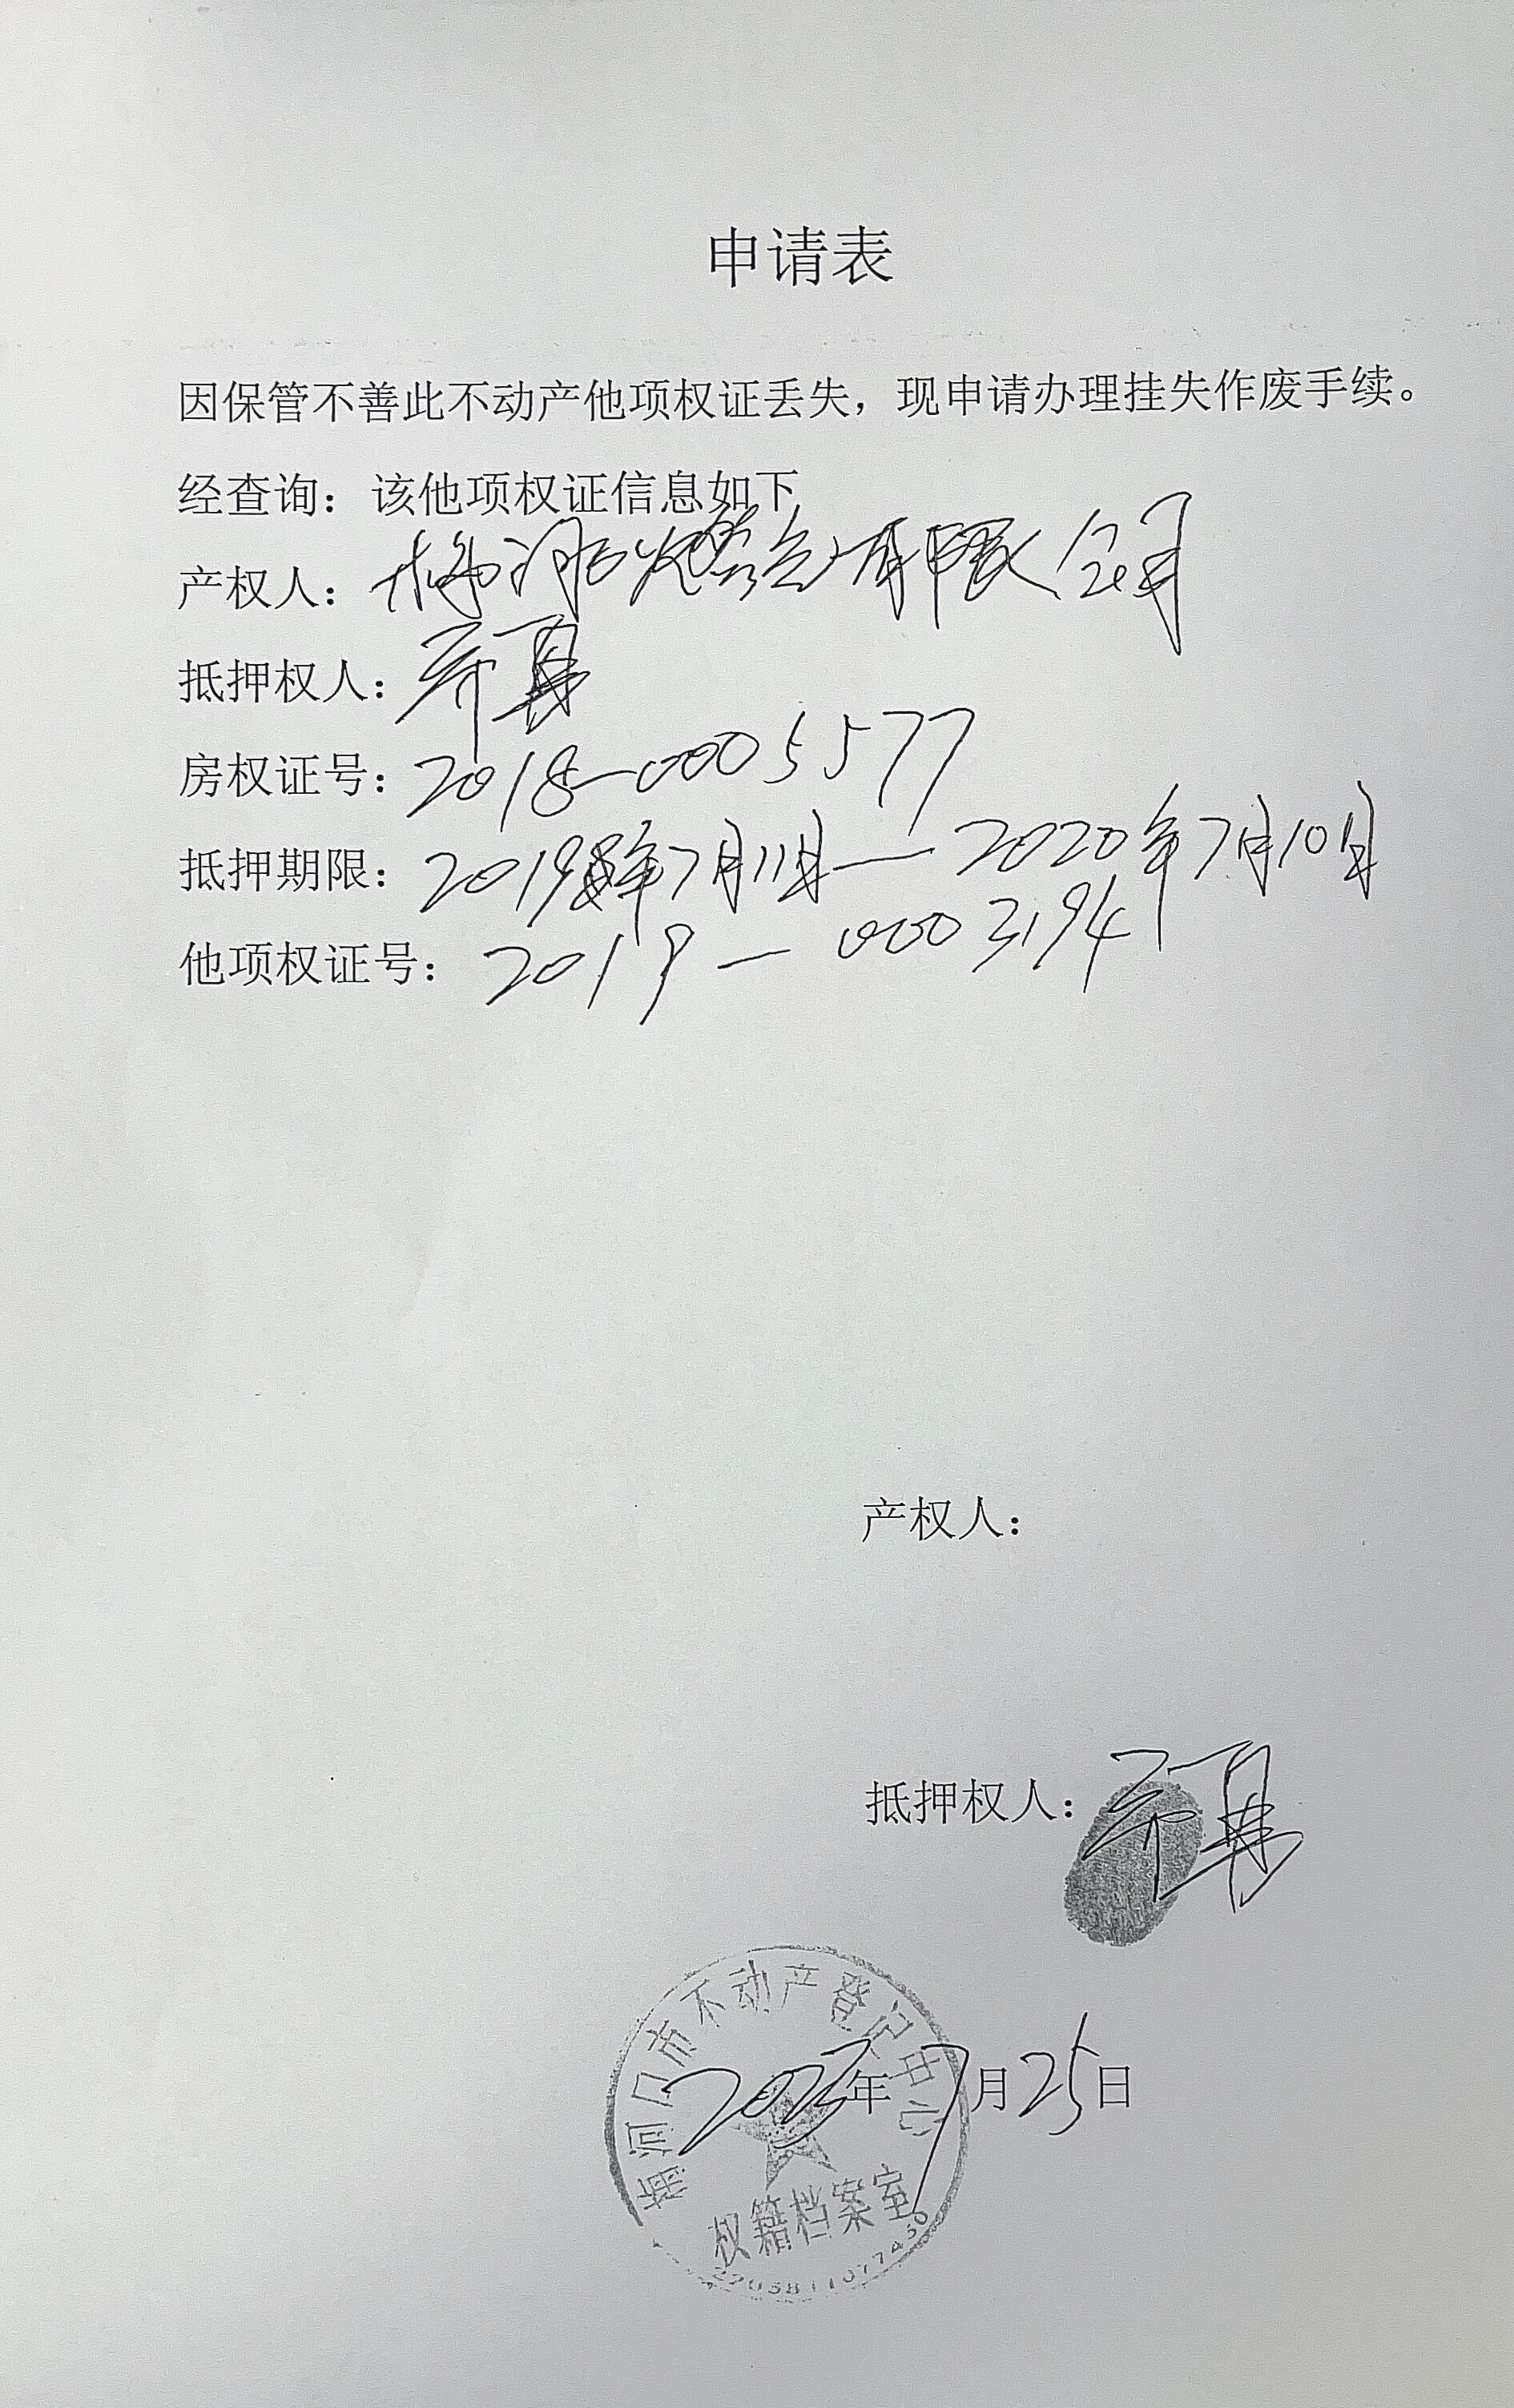 申请表
因保管不善此不动产他项权证丢失，现申请办理挂失作废手续。
经查询：该他项权证信息如下
产权人：梅河口 有限公司
抵押权人：乔
房权证号：2018-0005577
抵押期限：2019年7月11日—2020年7月10日
他项权证号：2019-0003194
产权人：
抵押权人：乔
2023年7月25日
梅河口市不动产登记中心
权籍档案室
2205811077430